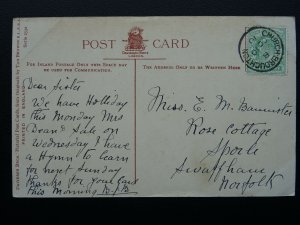 POST CARD
FOR INLAND POSTAGE ONLY THIS SPACE MAY
BE USED FOR COMMUNICATION.
THE ADDRESS ONLY TO BE WRITTEN HERE.
Dear Sister
We have Holliday
this Monday Mrs
Dean's Sale on
Wednesday I have
a Hymn to learn
for next Sunday
thanks for your card
this Morning B.J.B
Miss. E. M. Bannister
Rose Cottage
Sporle
Swaffham
Norfolk